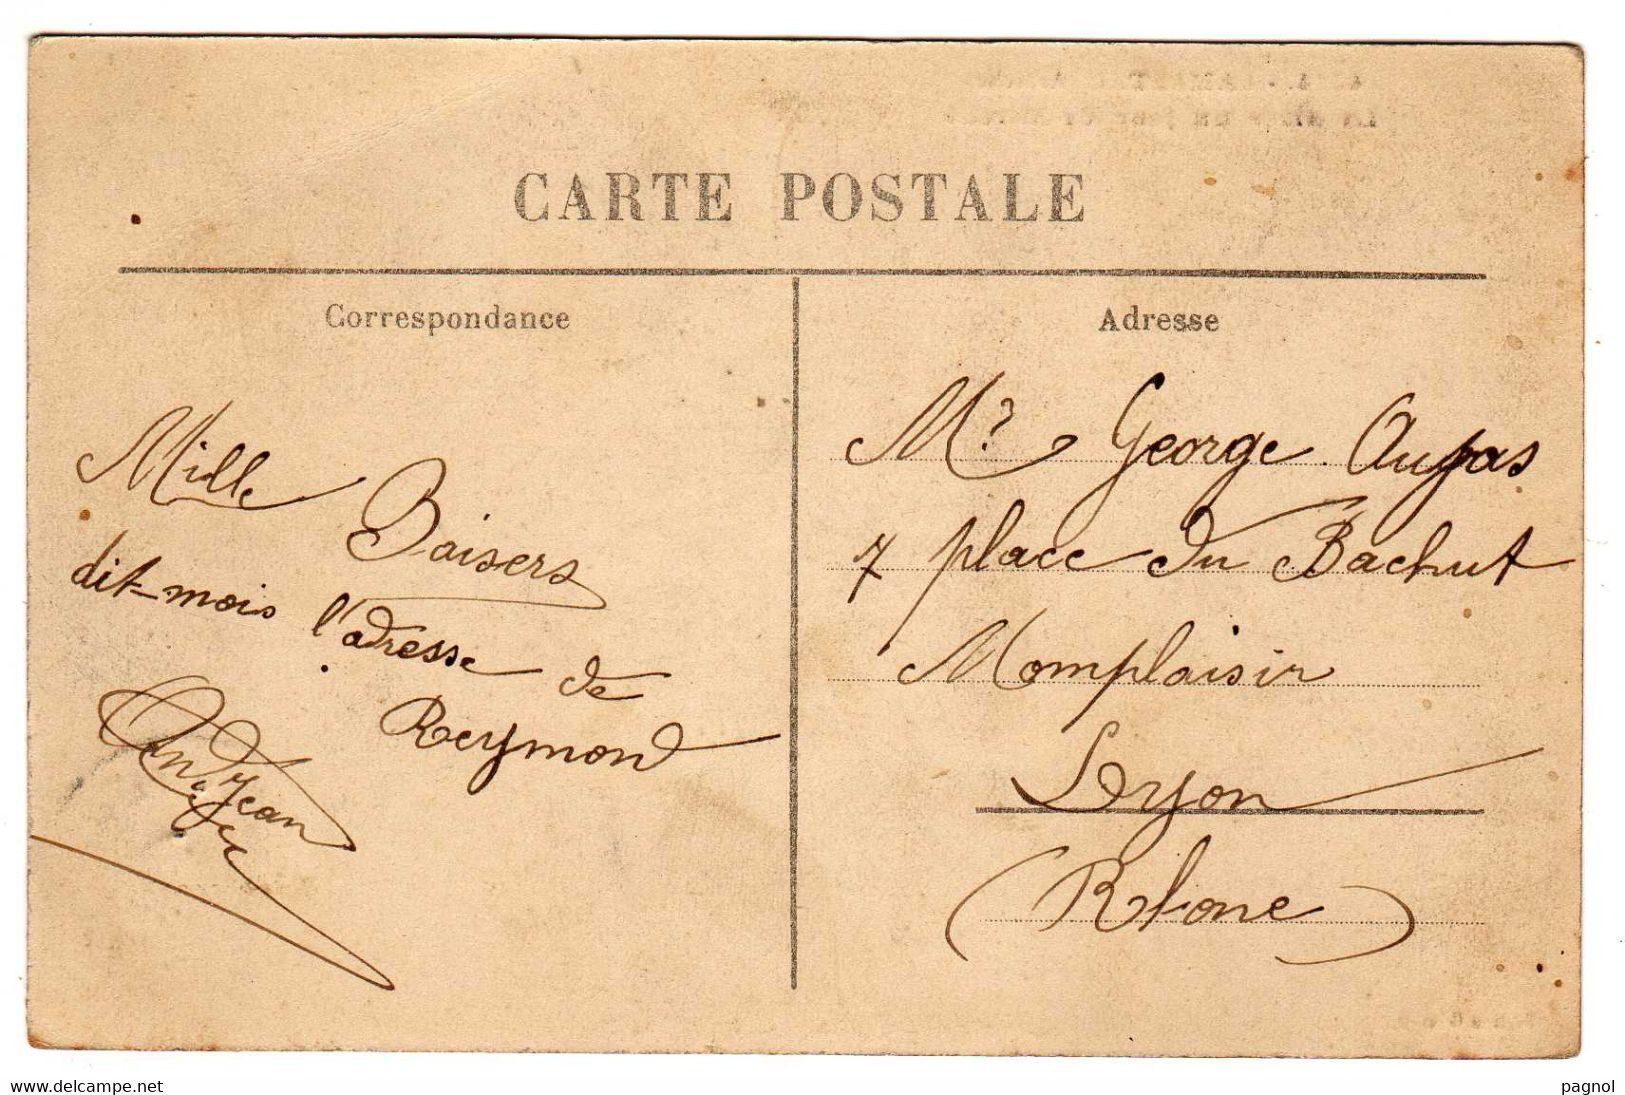 CARTE POSTALE
Correspondance
Mille Baisers
dit-mois l'adresse de
Reymond
Jean
Adresse
Mr George Aupas
7 place du Bachut
Momplaisir
Lyon
(Rhone)
www.delcampe.net
pagnol